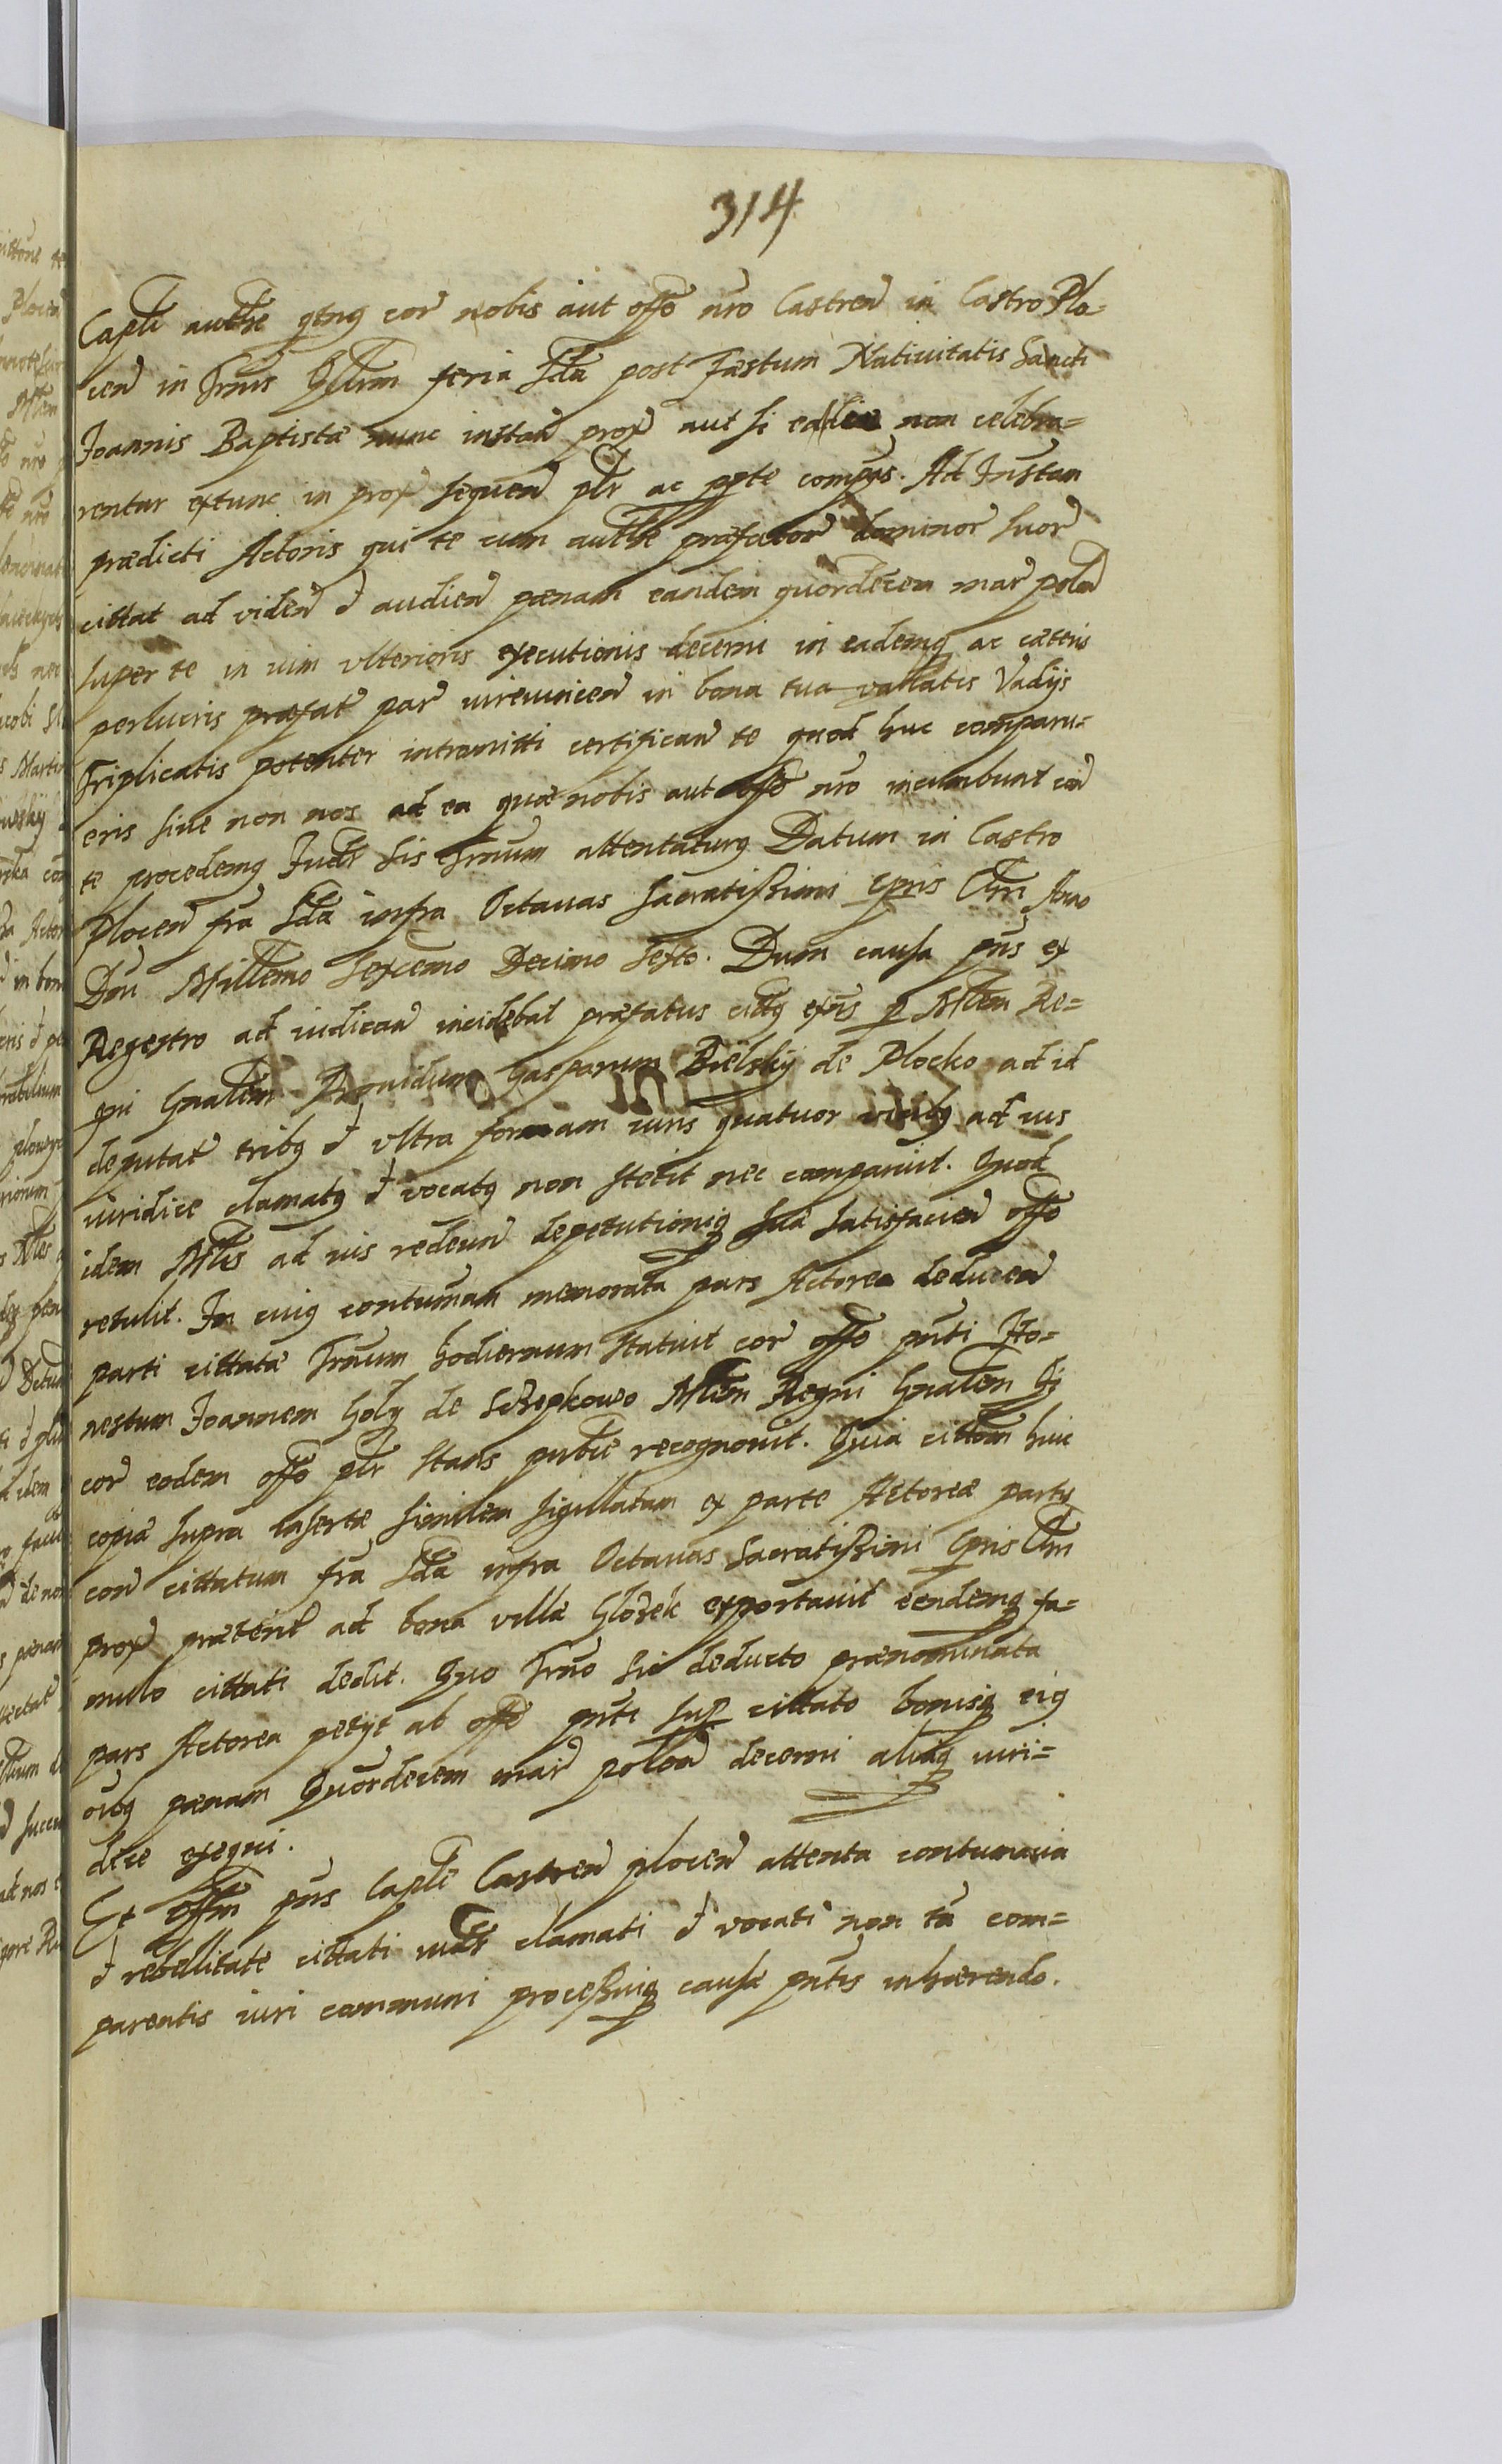 314
Captli authte qtnq cor nobis aut offo nro Castren in Castro Plo=
cen in Trnis Qllrum feria Scda post Festum Natiuitatis Sancti
Joannis Baptistæ nunc instan prox aut si eadie non celebra=
rentur extunc in prox sequen plr ac ppte compas. Ad Instan
prædicti Actoris qui te cum authte præfator dominor suor
cittat ad viden et audien pænam eandem quordecem mar polon
super te in vim vlterioris executionis decerni in eademq ac cæteris
perlucris præfat par vireuincen in bona tua vallatis Vadijs
Triplicatis potenter intromitti certifican te quod huc comparu=
eris siue non nos ad ea quæ nobis aut offo nro incumbunt con
te procedemq Judr sis Trnum attentaturq Datum in Castro
Plocen fra Scda infra Octauas Sacratissimi Cpris Chri Anno
Dni Millemo Sexcemo Decimo Sexto. Dum causa pns ex
Regestro ad iudican incidebat præfatus cittq exns p Mlem Re=
gni Gnalem Prouidum Gasparum Bielsky de Plocko ad id
deputat tribq et vltra formam iuris quatuor vicibq ad ius
iuridice clamatq et vocatq non stetit nec comparuit. Quod
idem Mlis ad ius redeun deputtioniq suæ satisfacien offo
retulit. In cuiq contumam memorata pars Actorea deducen
parti cittatæ Trnum hodiernum statuit cor offo pnti Ho=
nestum Joannem Goly de Schepkowo Mlem Regni Gnalem Qi
cor eodem offo plr stans publce recognouit. Quia cittom huic
copiæ supra insertæ similem sigillatam ex parte Actoreæ partis
con cittatum fra Scda infra Octauas Sacratissimi Cpris Chri
prox præterit ad bona villæ Glozek exportauit eendemq fa=
mulo cittati dedit. Quo Trno sic deducto prænominata
pars Actorea petijt ab offo pnti sup cittato bonisq eiq
oibq pænam Quordecem mar polon decerni aliaq iuri=
dice exequi.
Et offm pns Captle Castren plocen attenta contumacia
et rebellitate cittati iudr clamati et vocati non tn com=
parentis iuri communi processuiq causæ pntis inhærendo.